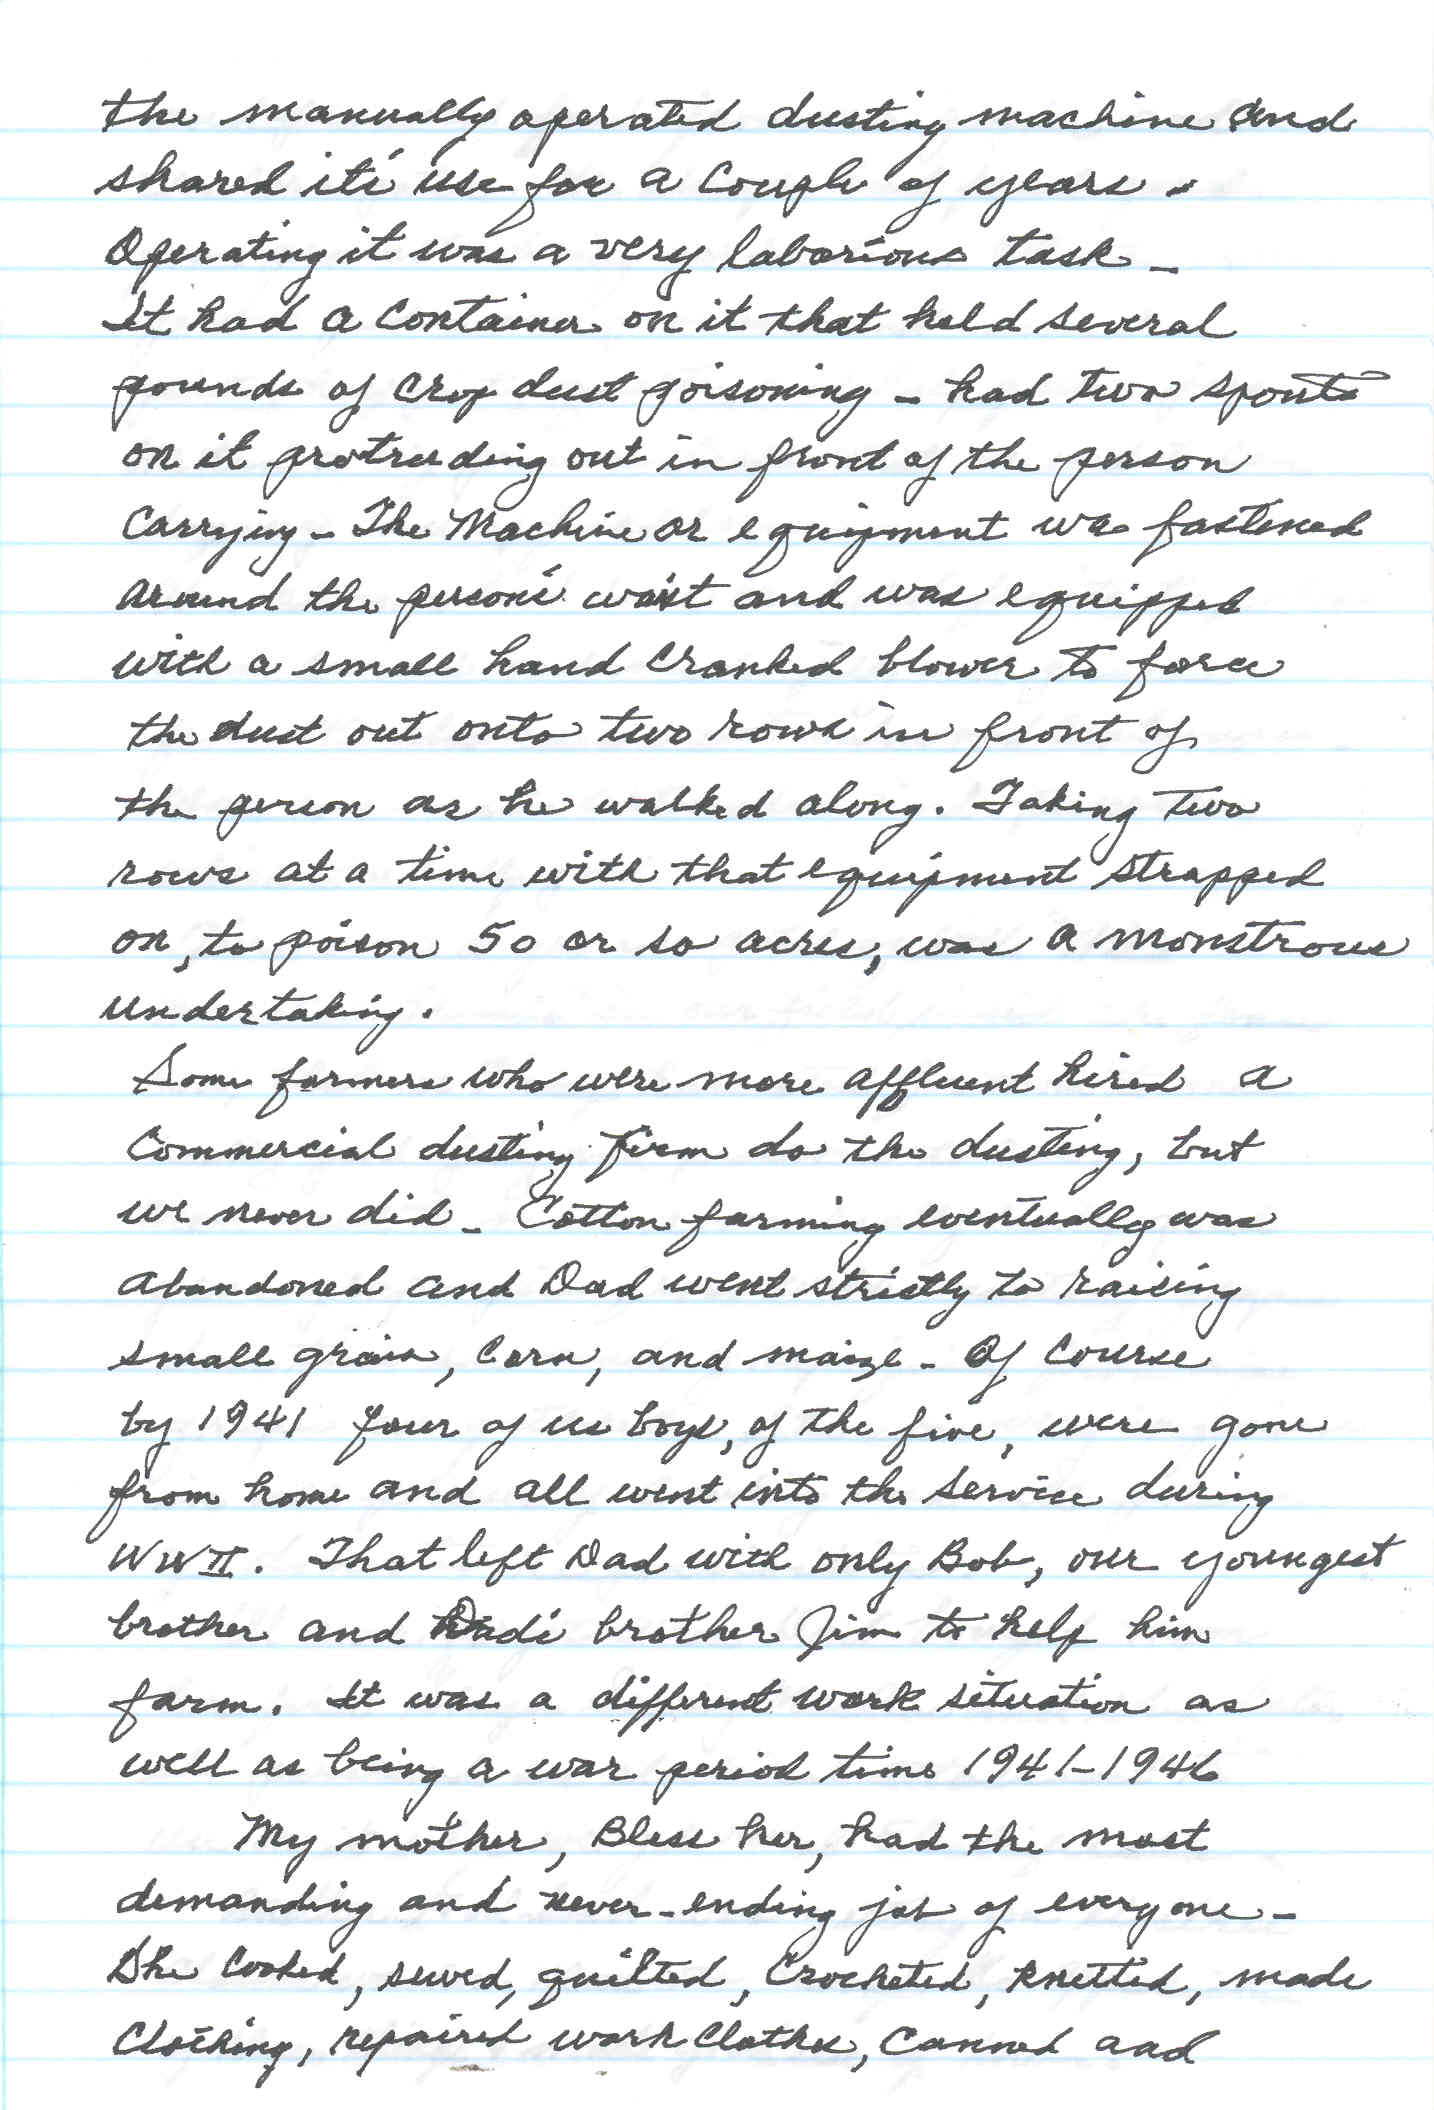 the manually operated dusting machine and
shared it's use for a couple of years.
Operating it was a very laborious task -
It had a container on it that held several
pounds of crop dust poisoning - had two spouts
on it protruding out in front of the person
carrying - The Machine or equipment was fastened
around the person's waist and was equipped
with a small hand cranked blower to force
the dust out onto two rows in front of
the person as he walked along. Taking two
rows at a time with that equipment strapped
on, to poison 50 or so acres, was a monstrous
undertaking.
Some farmers who were more affluent hired a
Commercial dusting firm do the dusting, but
we never did - Cotton farming eventually was
abandoned and Dad went strictly to raising
small grain, corn, and maize - Of course
by 1941 four of us boys, of the five, were gone
from home and all went into the service during
WWII. That left Dad with only Bob, our youngest
brother and Dad's brother Jim to help him
farm. It was a different work situation as
well as being a war period time 1941-1946
My mother, Bless her, had the most
demanding and never-ending job of everyone -
She cooked, sewed, quilted, crocheted, knetted, made
clothing, repaired work clothes, canned and